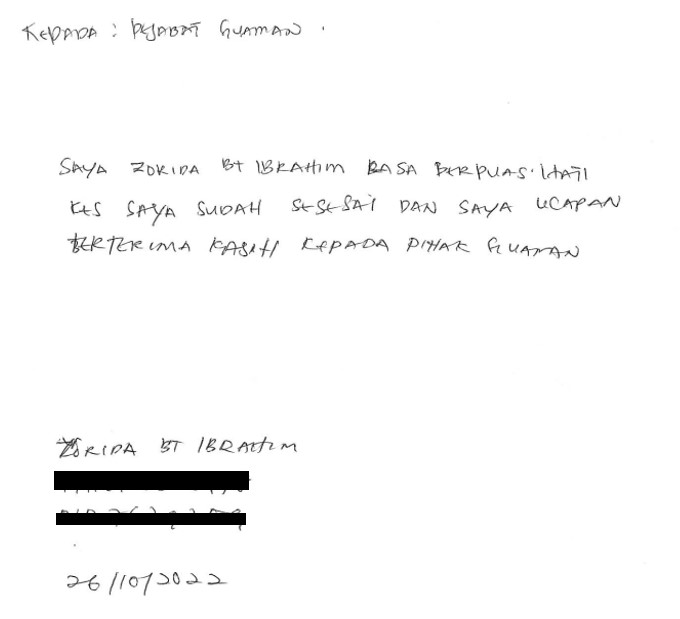 KEPADA : PEJABAT GUAMAN .
SAYA ZORIDA BT IBRAHIM RASA BERPUAS HATI
KES SAYA SUDAH SESESAI DAN SAYA UCAPAN
BERTERIMA KASIH KEPADA PIHAK GUAMAN
ZORIDA BT IBRAHIM
26/10/2022